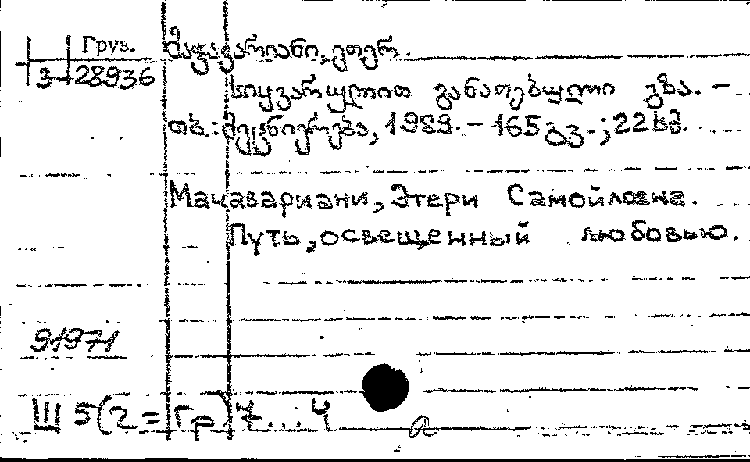 Груз.
3-28936
მაჭავარიანი, ეთერ.
სიყვარულით განათებული გზა. –
თბ.: მეცნიერება, 1989. – 165 გვ.; 22 სმ.
Мачавариани, Этери Самойловна.
Путь, освещенный любовью.
91971
Ш 5(2=Гр)7...4
а